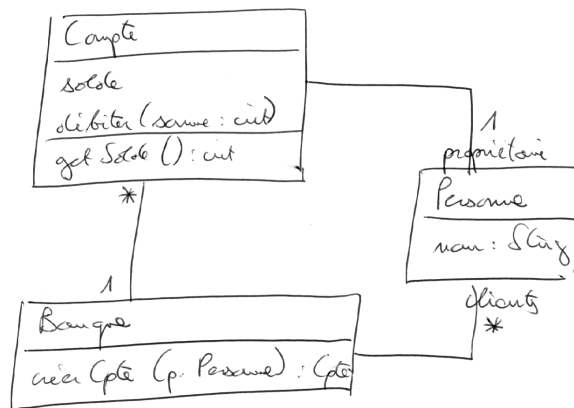 Compte
solde
débiter (somme : int)
getSolde () : int
*
1
propriétaire
Personne
nom : String
1
Banque
créerCpte (p. Personne) : Cpte
clients
*